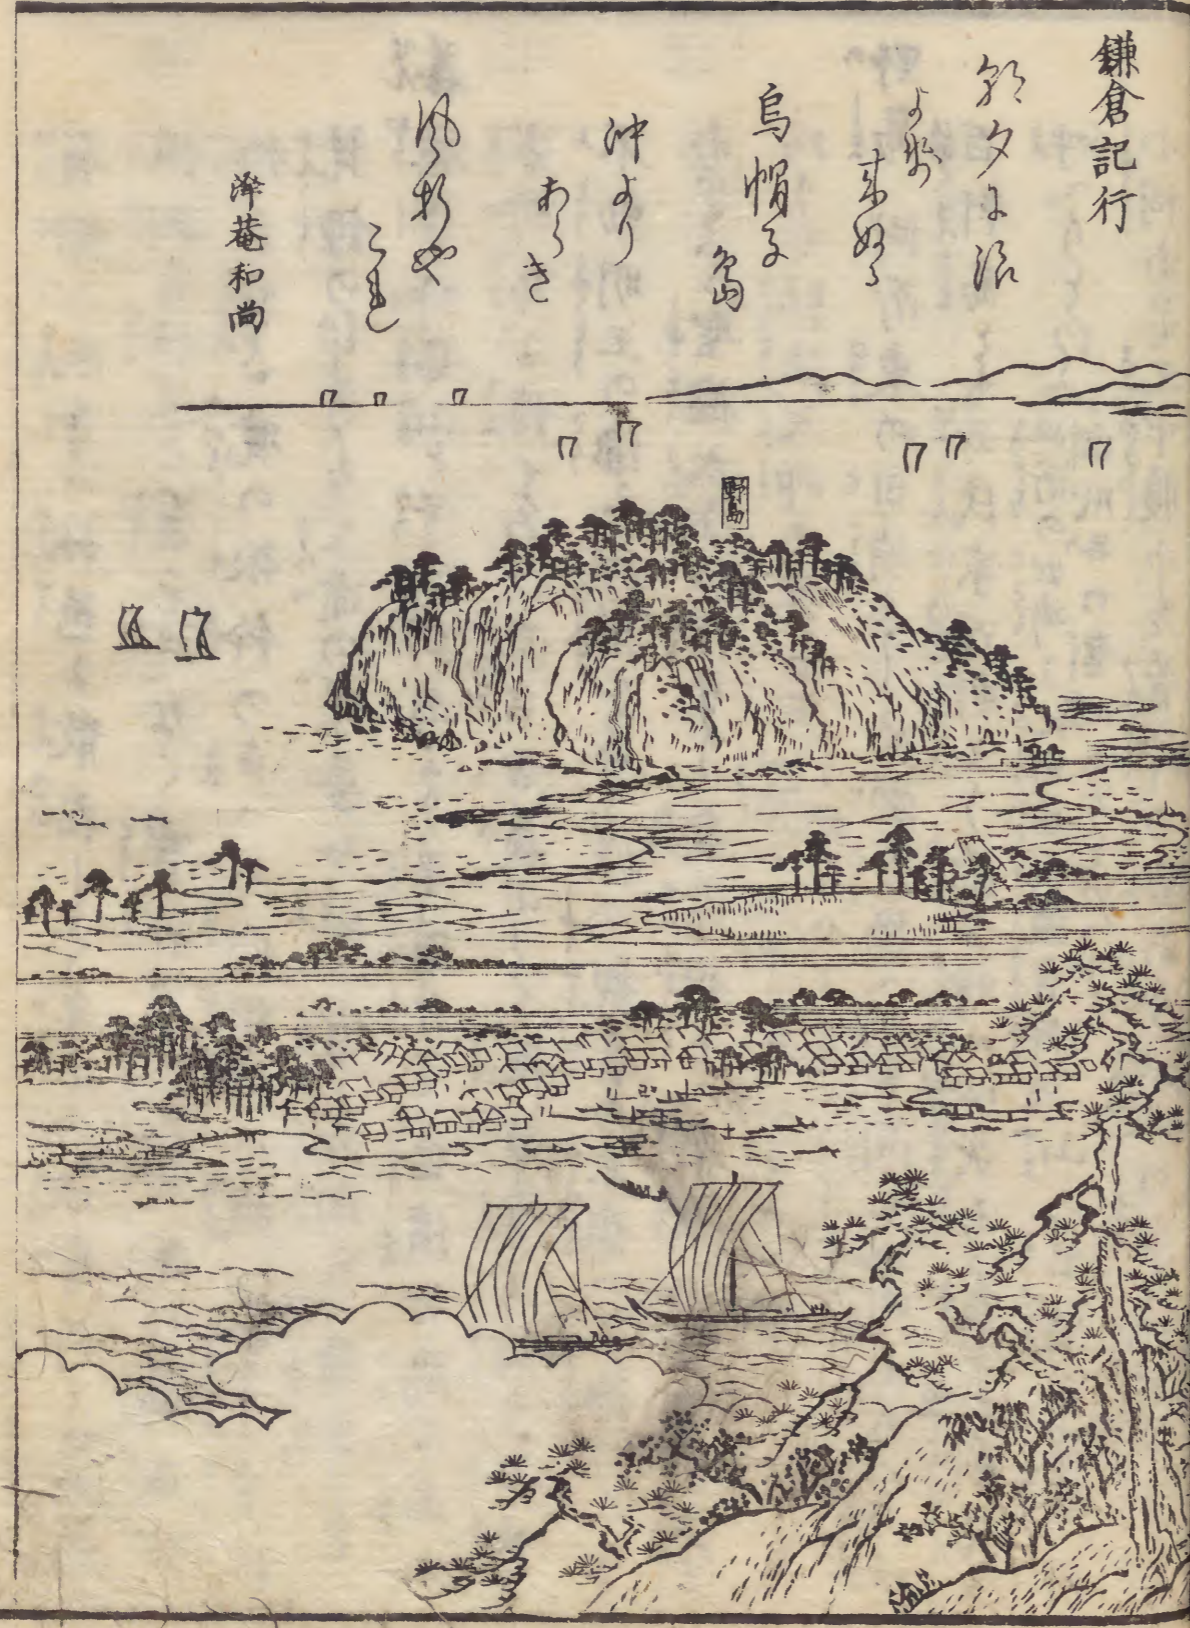 鎌倉記行
朝夕に浪
よせ
来ぬる
烏帽子
島
沖より
あらき
風折や
これ
澤菴和尚
野島